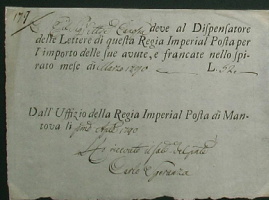 deve al Dispensatore
delle Lettere di questa Regia Imperial Posta per
l'importo delle sue avute, e francate nello spi-
rato mese di Marzo 1790 L.
Dall'Uffizio della Regia Imperial Posta di Man-
tova li 1790
Ho ricevuto
Carlo Speranza